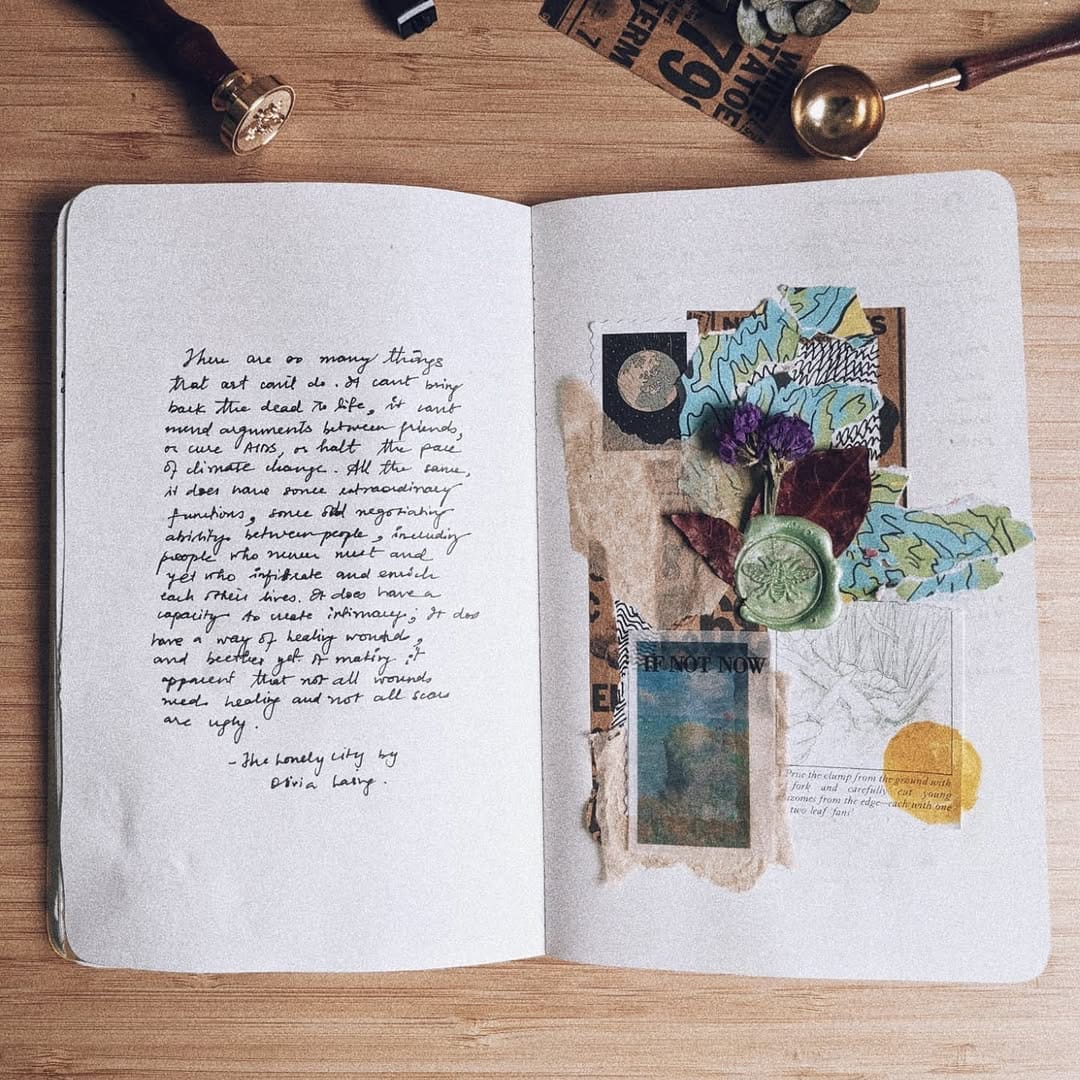 TERM
7
79¢
WHITE
POTATOE
There are so many things
that art can't do. It can't bring
back the dead to life, it can't
mend arguments between friends,
or cure AIDS, or halt the pace
of climate change. All the same,
it does have some extraordinary
functions, some odd negotiating
ability between people, including
people who never meet and
yet who infiltrate and enrich
each others lives. It does have a
capacity to create intimacy; It does
have a way of healing wounds,
and beether yet of making it
apparent that not all wounds
need healing and not all scars
are ugly.
- The Lonely City by
Olivia Laing.
IF NOT NOW
Prise the clump from the ground with
fork and carefully cut young
izomes from the edge—each with one
two leaf fans'